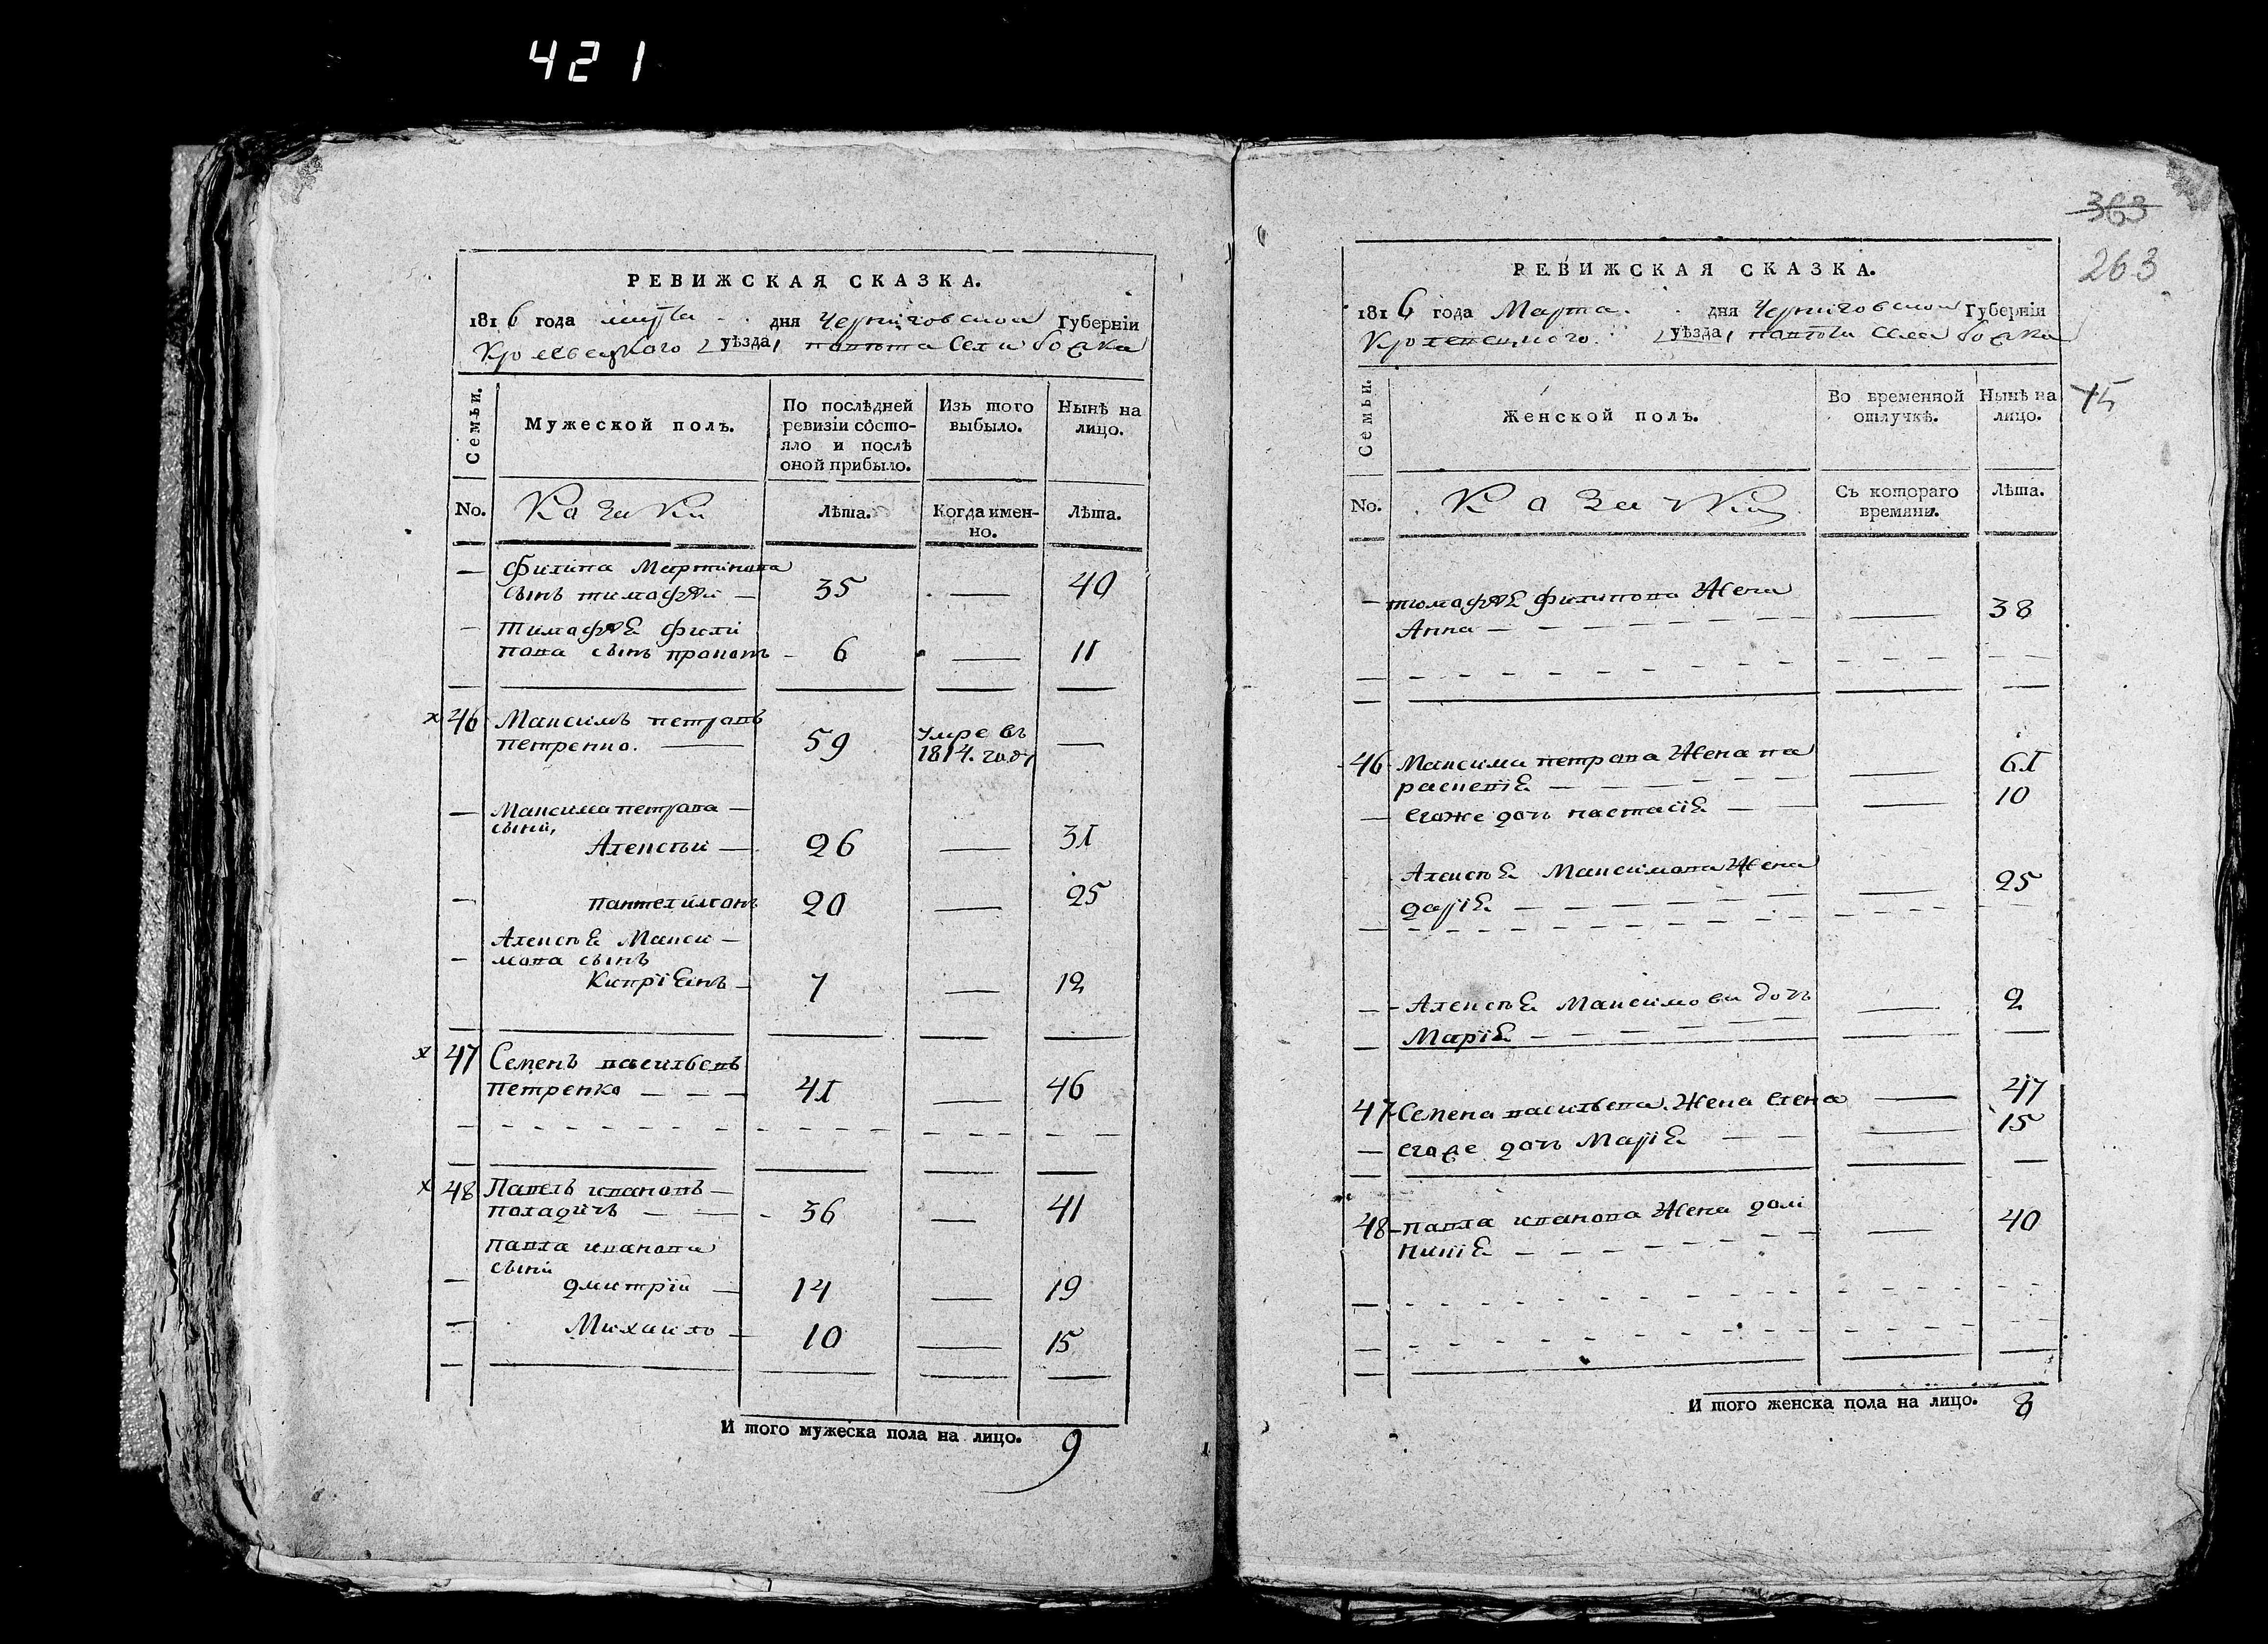 421
РЕВИЖСКАЯ СКАЗКА.
1816 года марта дня Черниговской Губерніи
Кролевецкого уѣзда, села
Семьи.
Мужеской полъ.
По послѣдней ревизіи состо-
яло и послѣ
оной прибыло.
Изъ того выбыло.
Нынѣ на лицо.
No.
Козаки
Лѣта.
Когда имен-
но.
Лѣта.
— Филипа Мартинова
сынъ тимофѣй — 35 — 40
— Тимофѣя Фили
пова сынъ — 6 — 11
х 46 Максимъ петровъ
петренко. — 59 умре въ 1814. году —
— Максима петрова —
сыни,
Алексѣй — 26 — 31
— пантелимонъ 20 — 25
Алексѣя Макси —
— мова сынъ
Кипріянъ — 7 — 12
х 47 Семенъ васильевъ
петренко — — — 41 — 46
х 48 Павелъ ивановъ —
поладичъ — — 36 — 41
павла иванова
сыни
— дмитрій — 14 — 19
— Михаило — 10 — 15
И того мужеска пола на лицо. 9
363
263
РЕВИЖСКАЯ СКАЗКА.
1816 года Марта. дня Черниговской Губерніи
Кролевецкого уѣзда, села
15
Семьи.
Женской полъ.
Во временной отлучкѣ.
Нынѣ на лицо.
No.
Козачки
Съ котораго времяни.
Лѣта.
— тимофѣя филипова Жена
Анна — 38
46 Максима петрова Жена па
раскевія — 61
— Егоже дочь настасія — 10
Алексѣя Максимова Жена
дарія — 25
— Алексѣя Максимова дочъ
Марія — 2
47 Семена васильева Жена елена — 47
— дочь Марія — 15
48 — павла иванова Жена домі
никія — 40
И того женска пола на лицо. 8